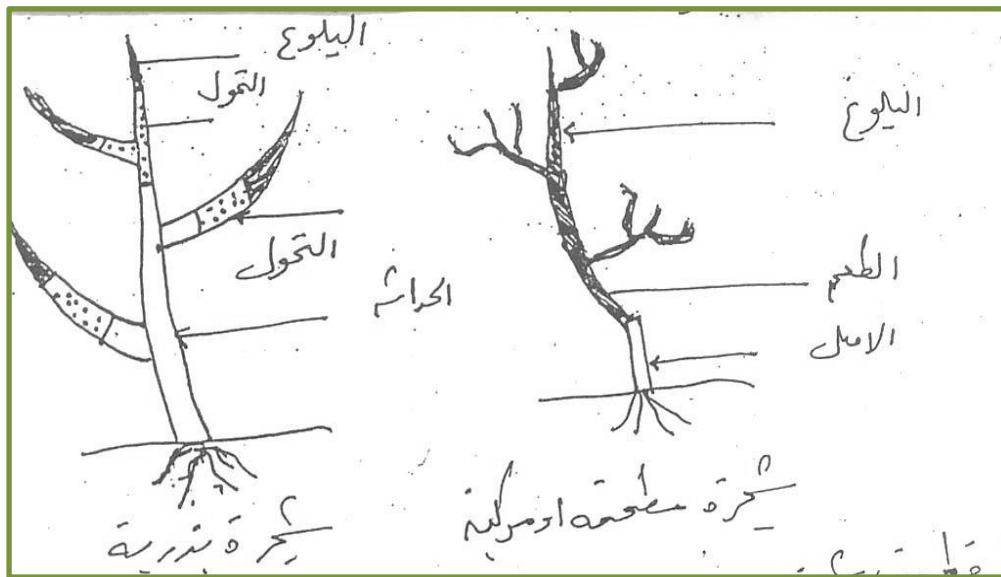 البلوغ
التحول
التحول
الحداثة
شجرة بذرية
البلوغ
الطعم
الاصل
شجرة مطعمة او مركبة